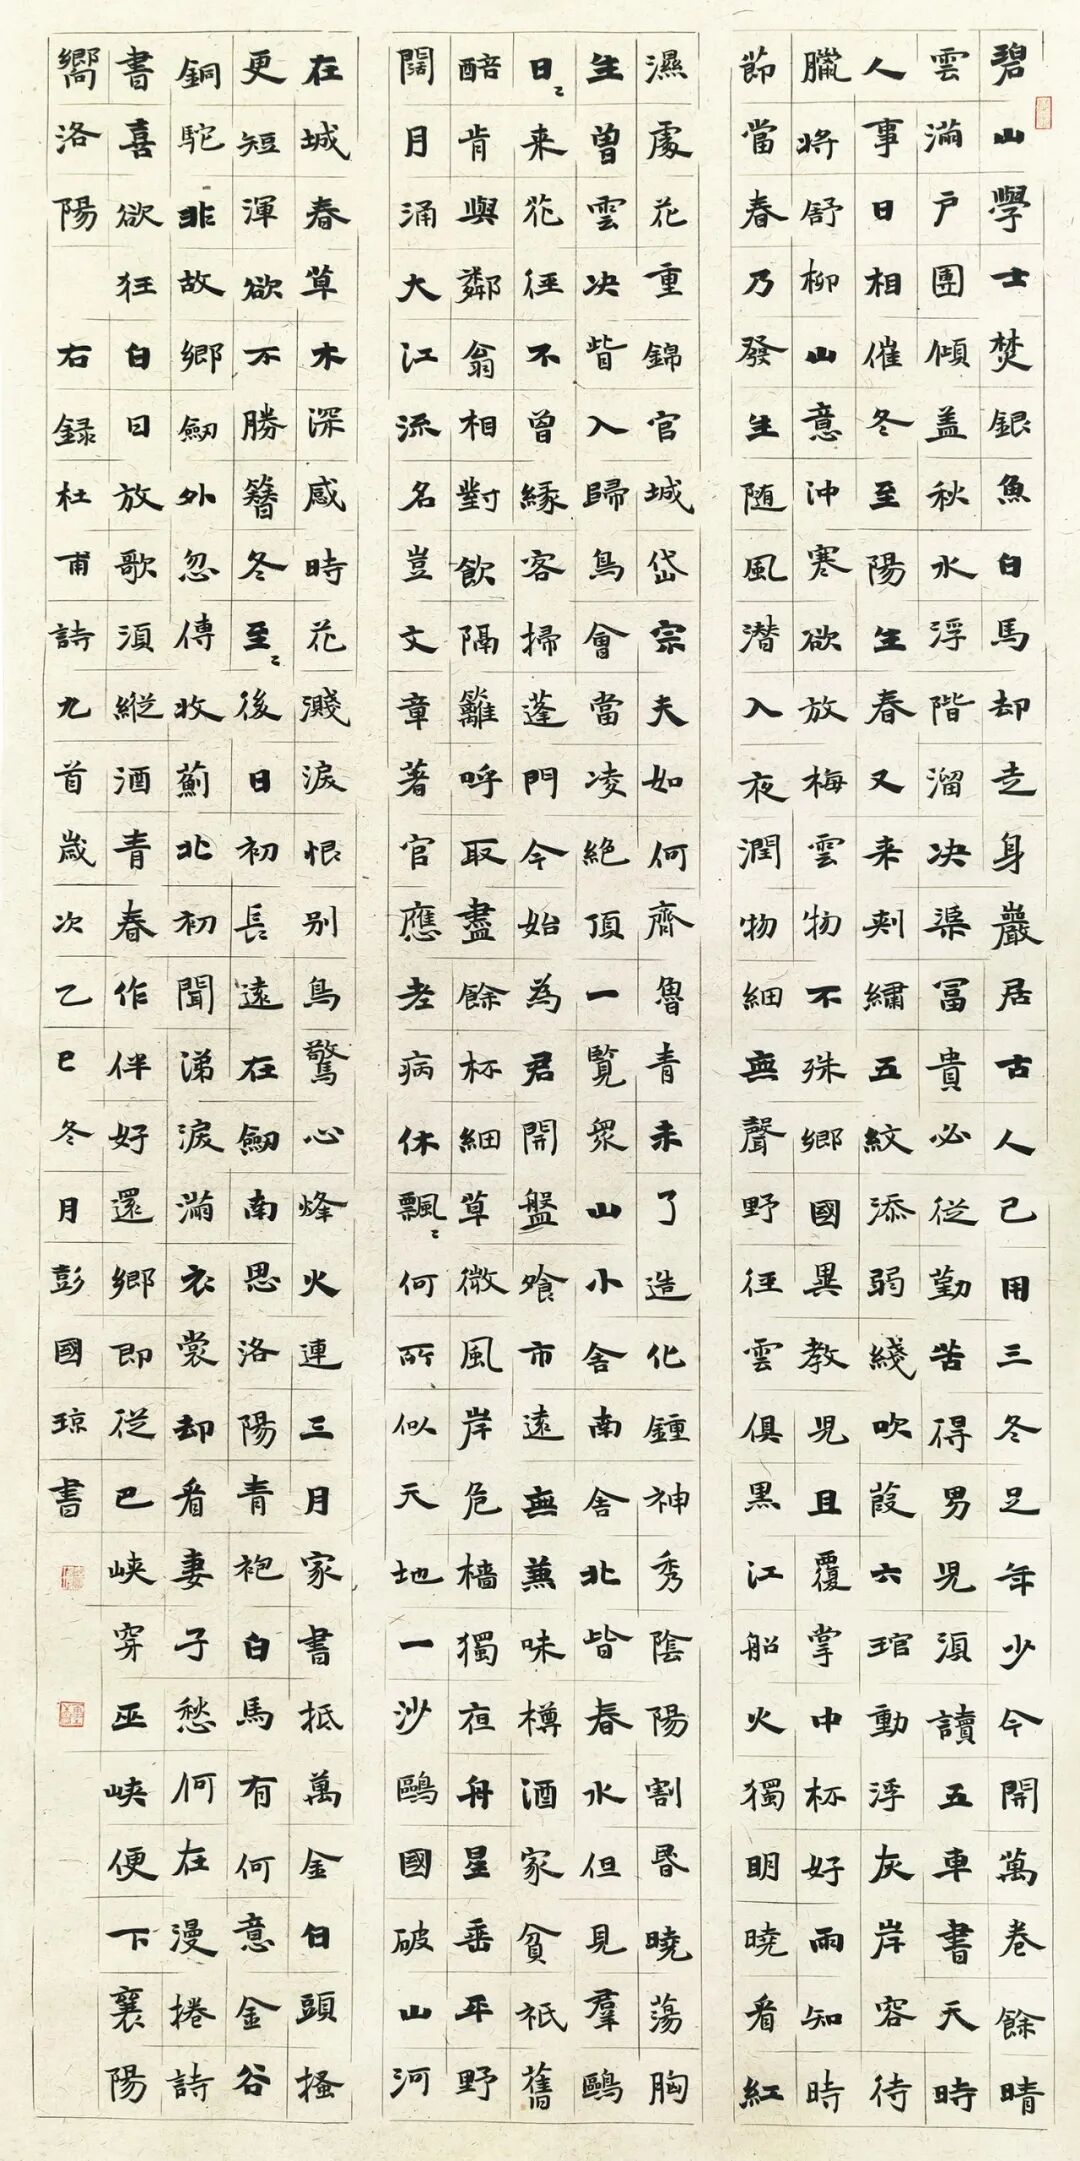 碧山學士焚銀魚白馬却走身巖居古人已用三冬足年少今開萬卷餘晴
雲滿戶團傾盖秋水浮階溜决渠冨貴必從勤苦得男兒湏讀五車書天時
人事日相催冬至陽生春又来刺繡五紋添弱綫吹葭六琯動浮灰岸容待
臘將舒柳山意沖寒欲放梅雲物不殊鄉國異教兒且覆掌中杯好雨知時
節當春乃發生随風潜入夜潤物細無聲野徑雲俱黑江船火獨明曉看紅
濕處花重錦官城岱宗夫如何齊魯青未了造化鍾神秀陰陽割昏曉蕩胸
生曽雲决眥入歸鳥會當凌絶頂一覽衆山小舍南舍北皆春水但見羣鷗
日〻来花徑不曾緣客掃蓬門今始為君開盤飧市遠無兼味樽酒家貧祇舊
醅肯與鄰翁相對飲隔籬呼取盡餘杯細草微風岸危檣獨夜舟星垂平野
闊月涌大江流名豈文章著官應老病休飄〻何所似天地一沙鷗國破山河
在城春草木深感時花濺淚恨别鳥驚心烽火連三月家書抵萬金白頭搔
更短渾欲不勝簪冬至〻後日初長遠在劒南思洛陽青袍白馬有何意金谷
銅駝非故鄉劒外忽傳收薊北初聞涕淚滿衣裳却看妻子愁何在漫捲詩
書喜欲狂白日放歌湏縱酒青春作伴好還鄉即從巴峽穿巫峽便下襄陽
嚮洛陽 右録杜甫詩九首歲次乙巳冬月彭國琼書